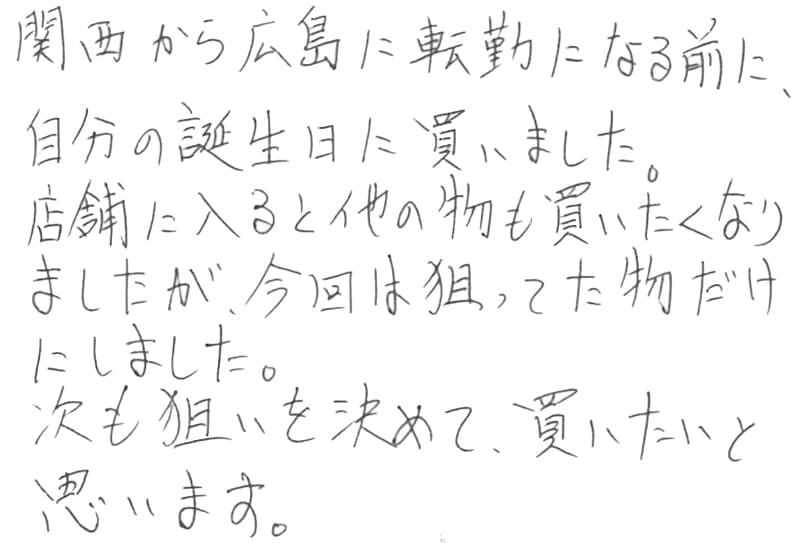 関西から広島に転勤になる前に、
自分の誕生日に買いました。
店舗に入ると他の物も買いたくなり
ましたが、今回は狙ってた物だけ
にしました。
次も狙いを決めて、買いたいと
思います。